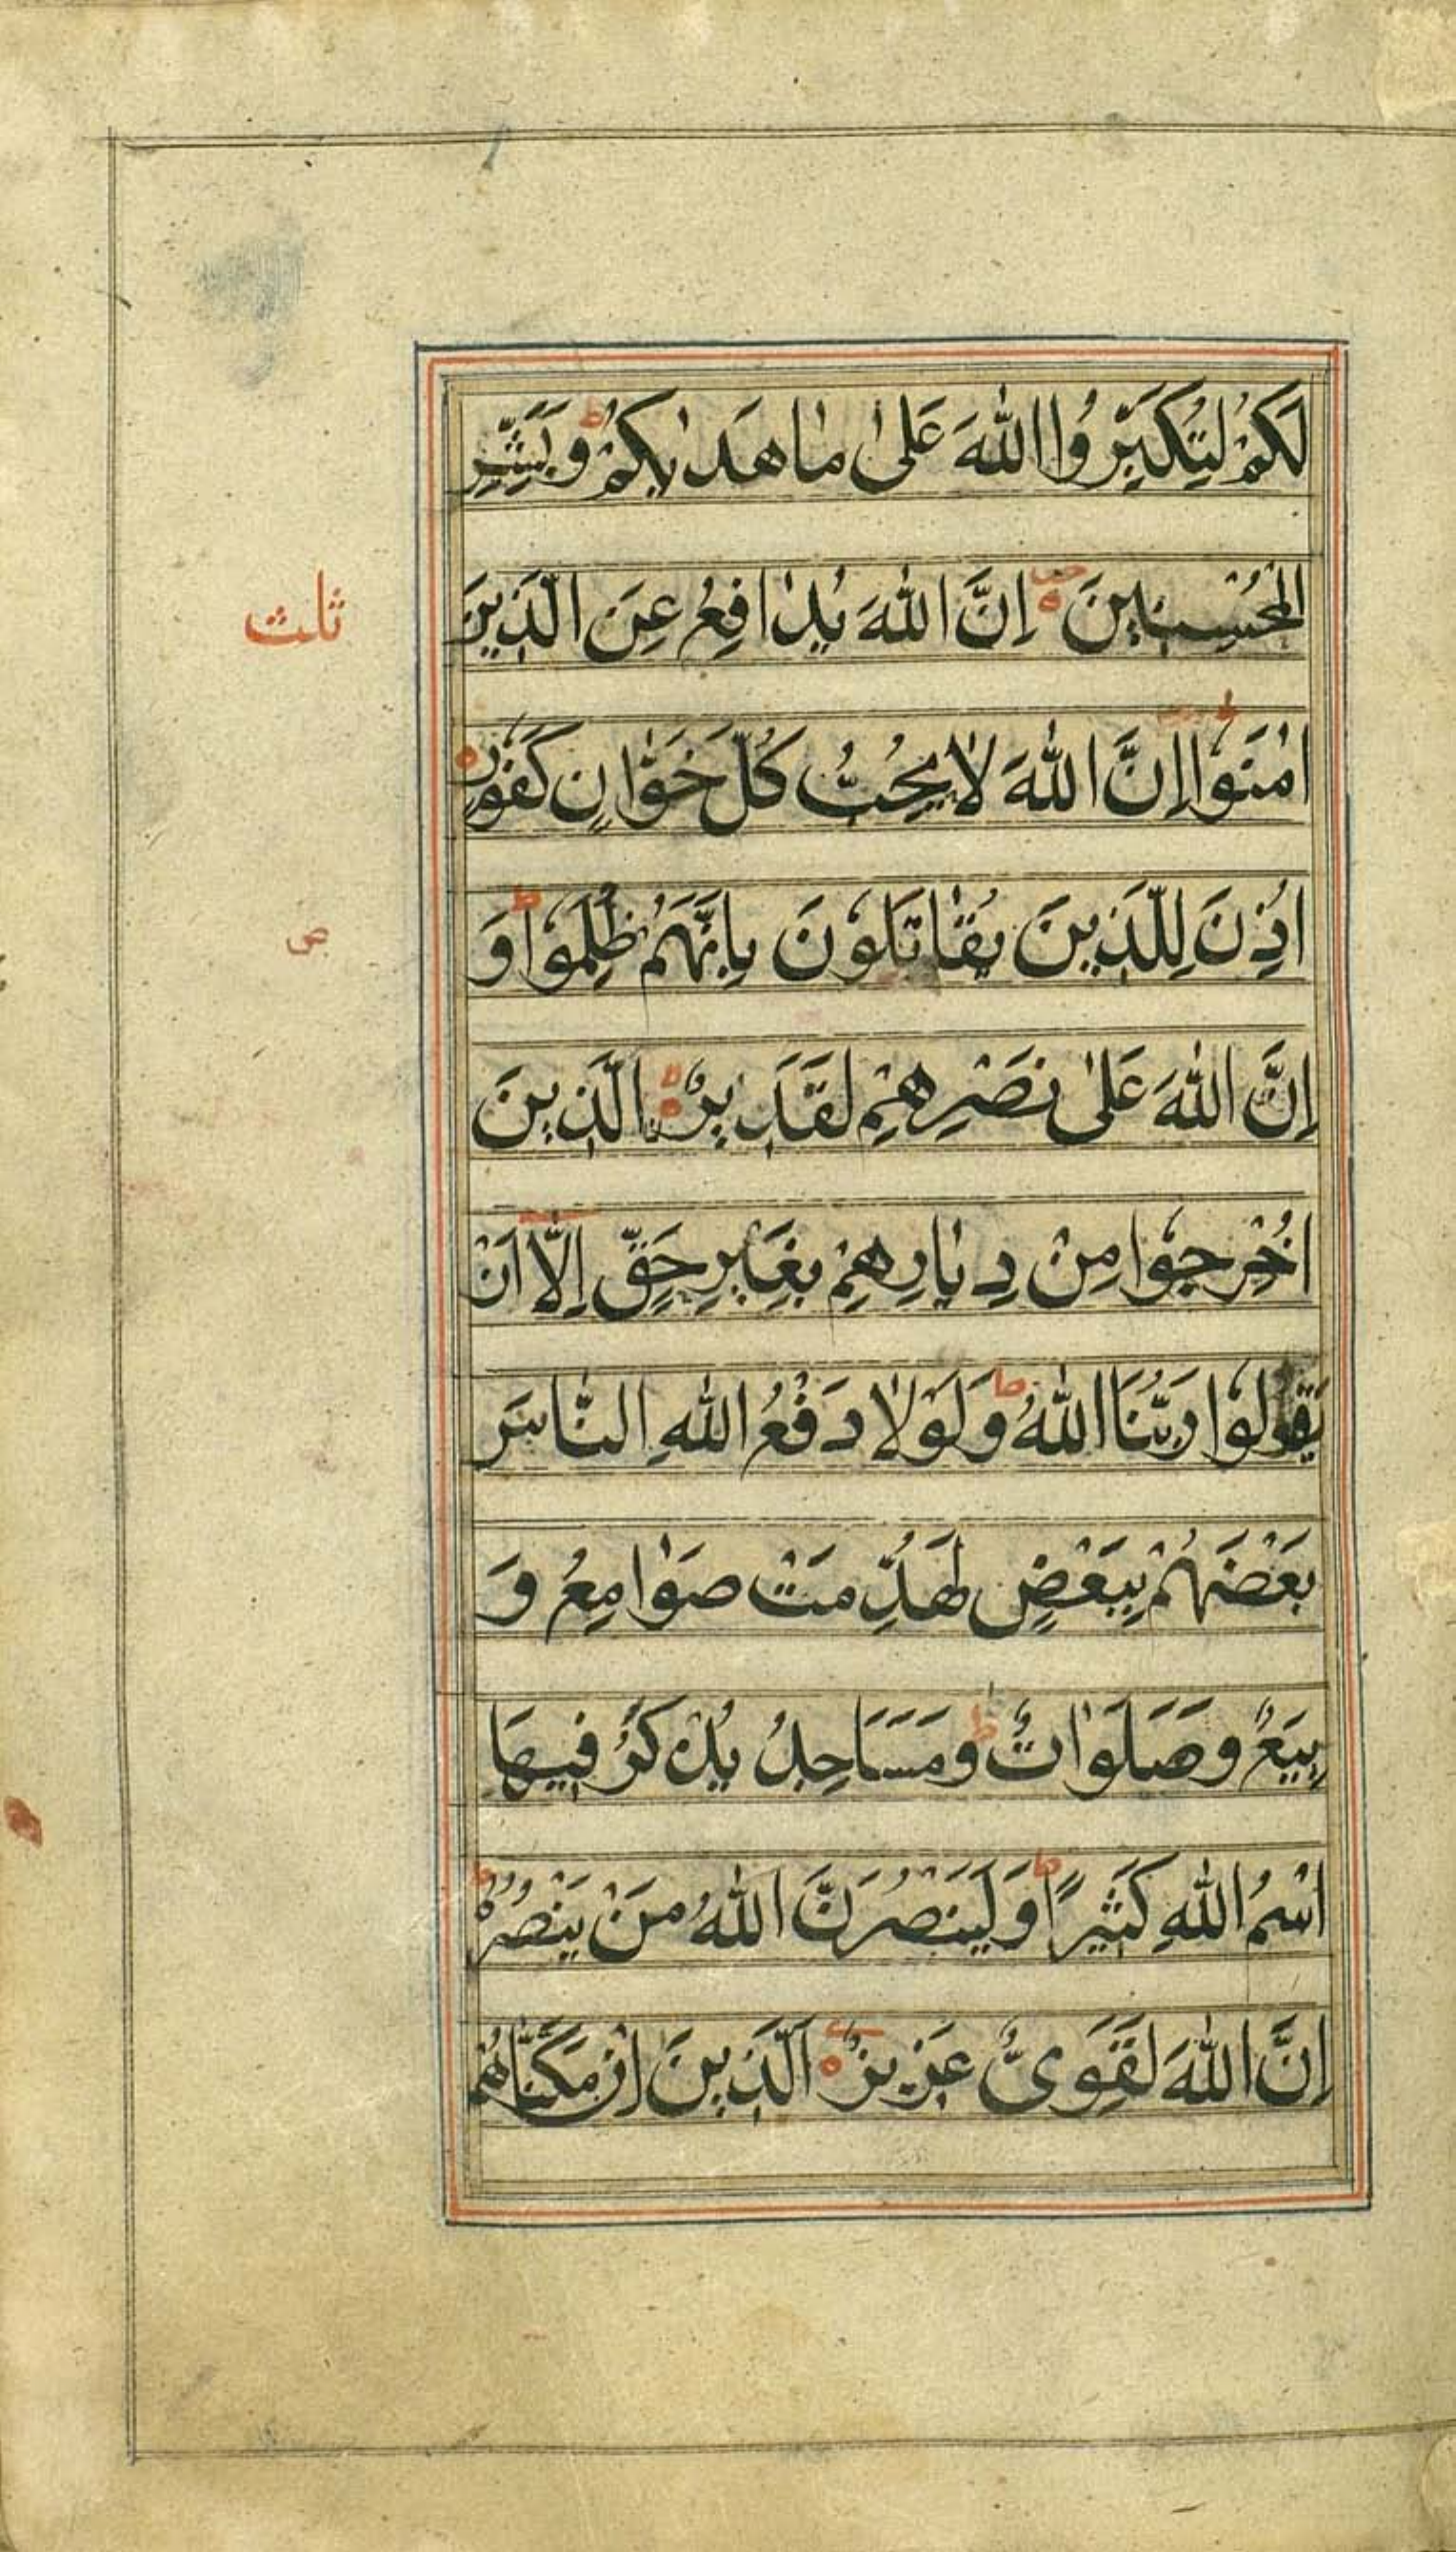 لَكُمْ لِتُكَبِّرُوا اللّٰهَ عَلىٰ مٰا هَدٰيكُمْ ط وَبَشِّرِ
الْمُحْسِنِينَ ه اِنَّ اللّٰهَ يُدٰافِعُ عَنِ الَّذِينَ
ثلث
اٰمَنُوا ط اِنَّ اللّٰهَ لٰا يُحِبُّ كُلَّ خَوّٰانٍ كَفُورٍ ه
اُذِنَ لِلَّذِينَ يُقٰاتَلُونَ بِاَنَّهُمْ ظُلِمُوا ط وَ
ص
اِنَّ اللّٰهَ عَلىٰ نَصْرِهِمْ لَقَدِيرٌ ه الَّذِينَ
اُخْرِجُوا مِنْ دِيٰارِهِمْ بِغَيْرِ حَقٍّ اِلّٰا اَنْ
يَقُولُوا رَبُّنَا اللّٰهُ ط وَلَوْلٰا دَفْعُ اللّٰهِ النّٰاسَ
بَعْضَهُمْ بِبَعْضٍ لَهُدِّمَتْ صَوٰامِعُ وَ
بِيَعٌ وَصَلَوٰاتٌ ط وَمَسَاجِدُ يُذْكَرُ فِيهَا
اسْمُ اللّٰهِ كَثِيرًا ط وَلَيَنْصُرَنَّ اللّٰهُ مَنْ يَنْصُرُهُ ط
اِنَّ اللّٰهَ لَقَوِىٌّ عَزِيزٌ ه اَلَّذِينَ اِنْ مَكَّنّٰاهُمْ